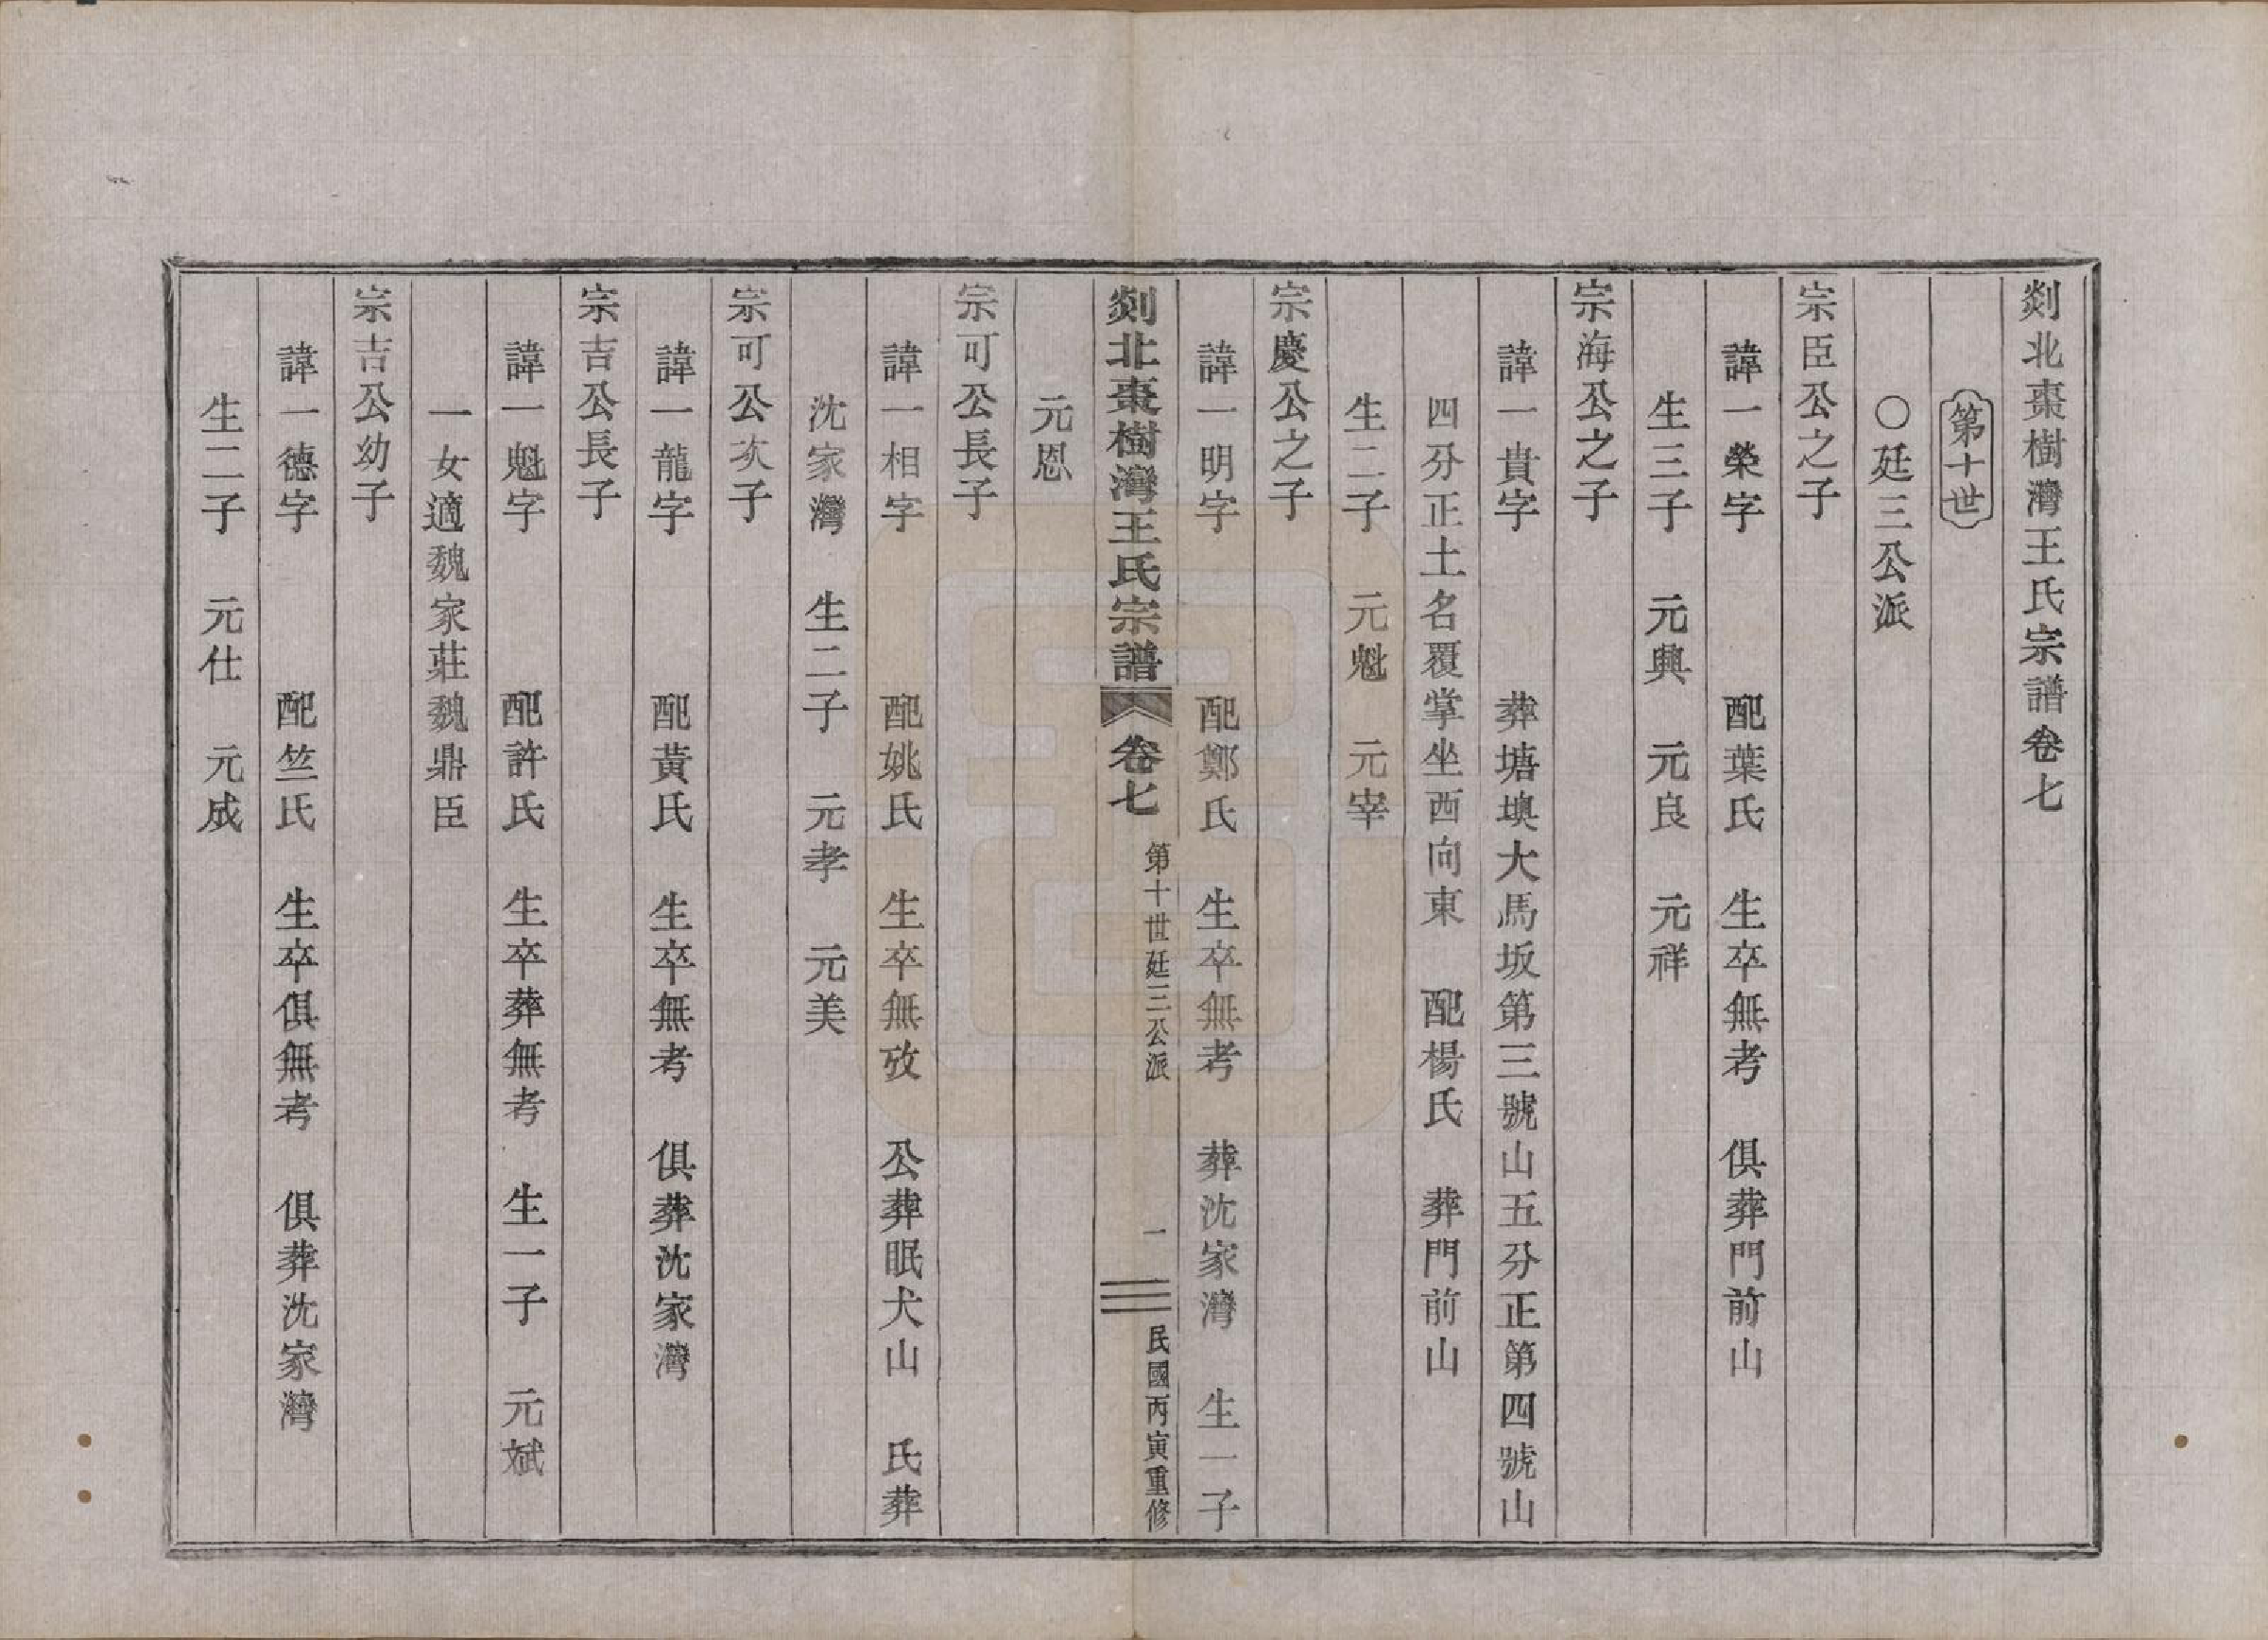 剡北棗樹灣王氏宗譜卷七
第十世
○廷三公派
宗臣公之子
諱一榮字 配葉氏 生卒無考 俱葬門前山
生三子 元興 元良 元祥
宗海公之子
諱一貴字 葬塘墺大馬坂第三號山五分正第四號山
四分正土名覆掌坐西向東 配楊氏 葬門前山
生二子 元魁 元宰
宗慶公之子
諱一明字 配鄭氏 生卒無考 葬沈家灣 生一子
剡北棗樹灣王氏宗譜 卷七 第十世廷三公派 一 民國丙寅重修
元恩
宗可公長子
諱一相字 配姚氏 生卒無攷 公葬眠犬山 氏葬
沈家灣 生二子 元孝 元美
宗可公次子
諱一龍字 配黃氏 生卒無考 俱葬沈家灣
宗吉公長子
諱一魁字 配許氏 生卒葬無考 生一子 元斌
一女適魏家莊魏鼎臣
宗吉公幼子
諱一德字 配竺氏 生卒俱無考 俱葬沈家灣
生二子 元仕 元成